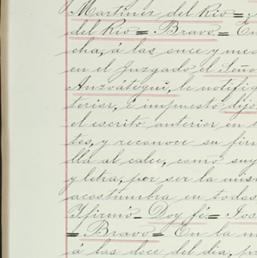 Martinez del Rio =
del Rio = Bravo = En
cha, á las once y med
en el Juzgado el Seño
Anzoátegui, le notifiq
terior, é impuesto dijo
el escrito anterior en t
tes, y reconoce su fir
lla al calce, como suy
y letra, por ser la mism
acostumbra en todas
Y firmó = Doy fé = Jos
= Bravo = En la m
á las doce del dia, p